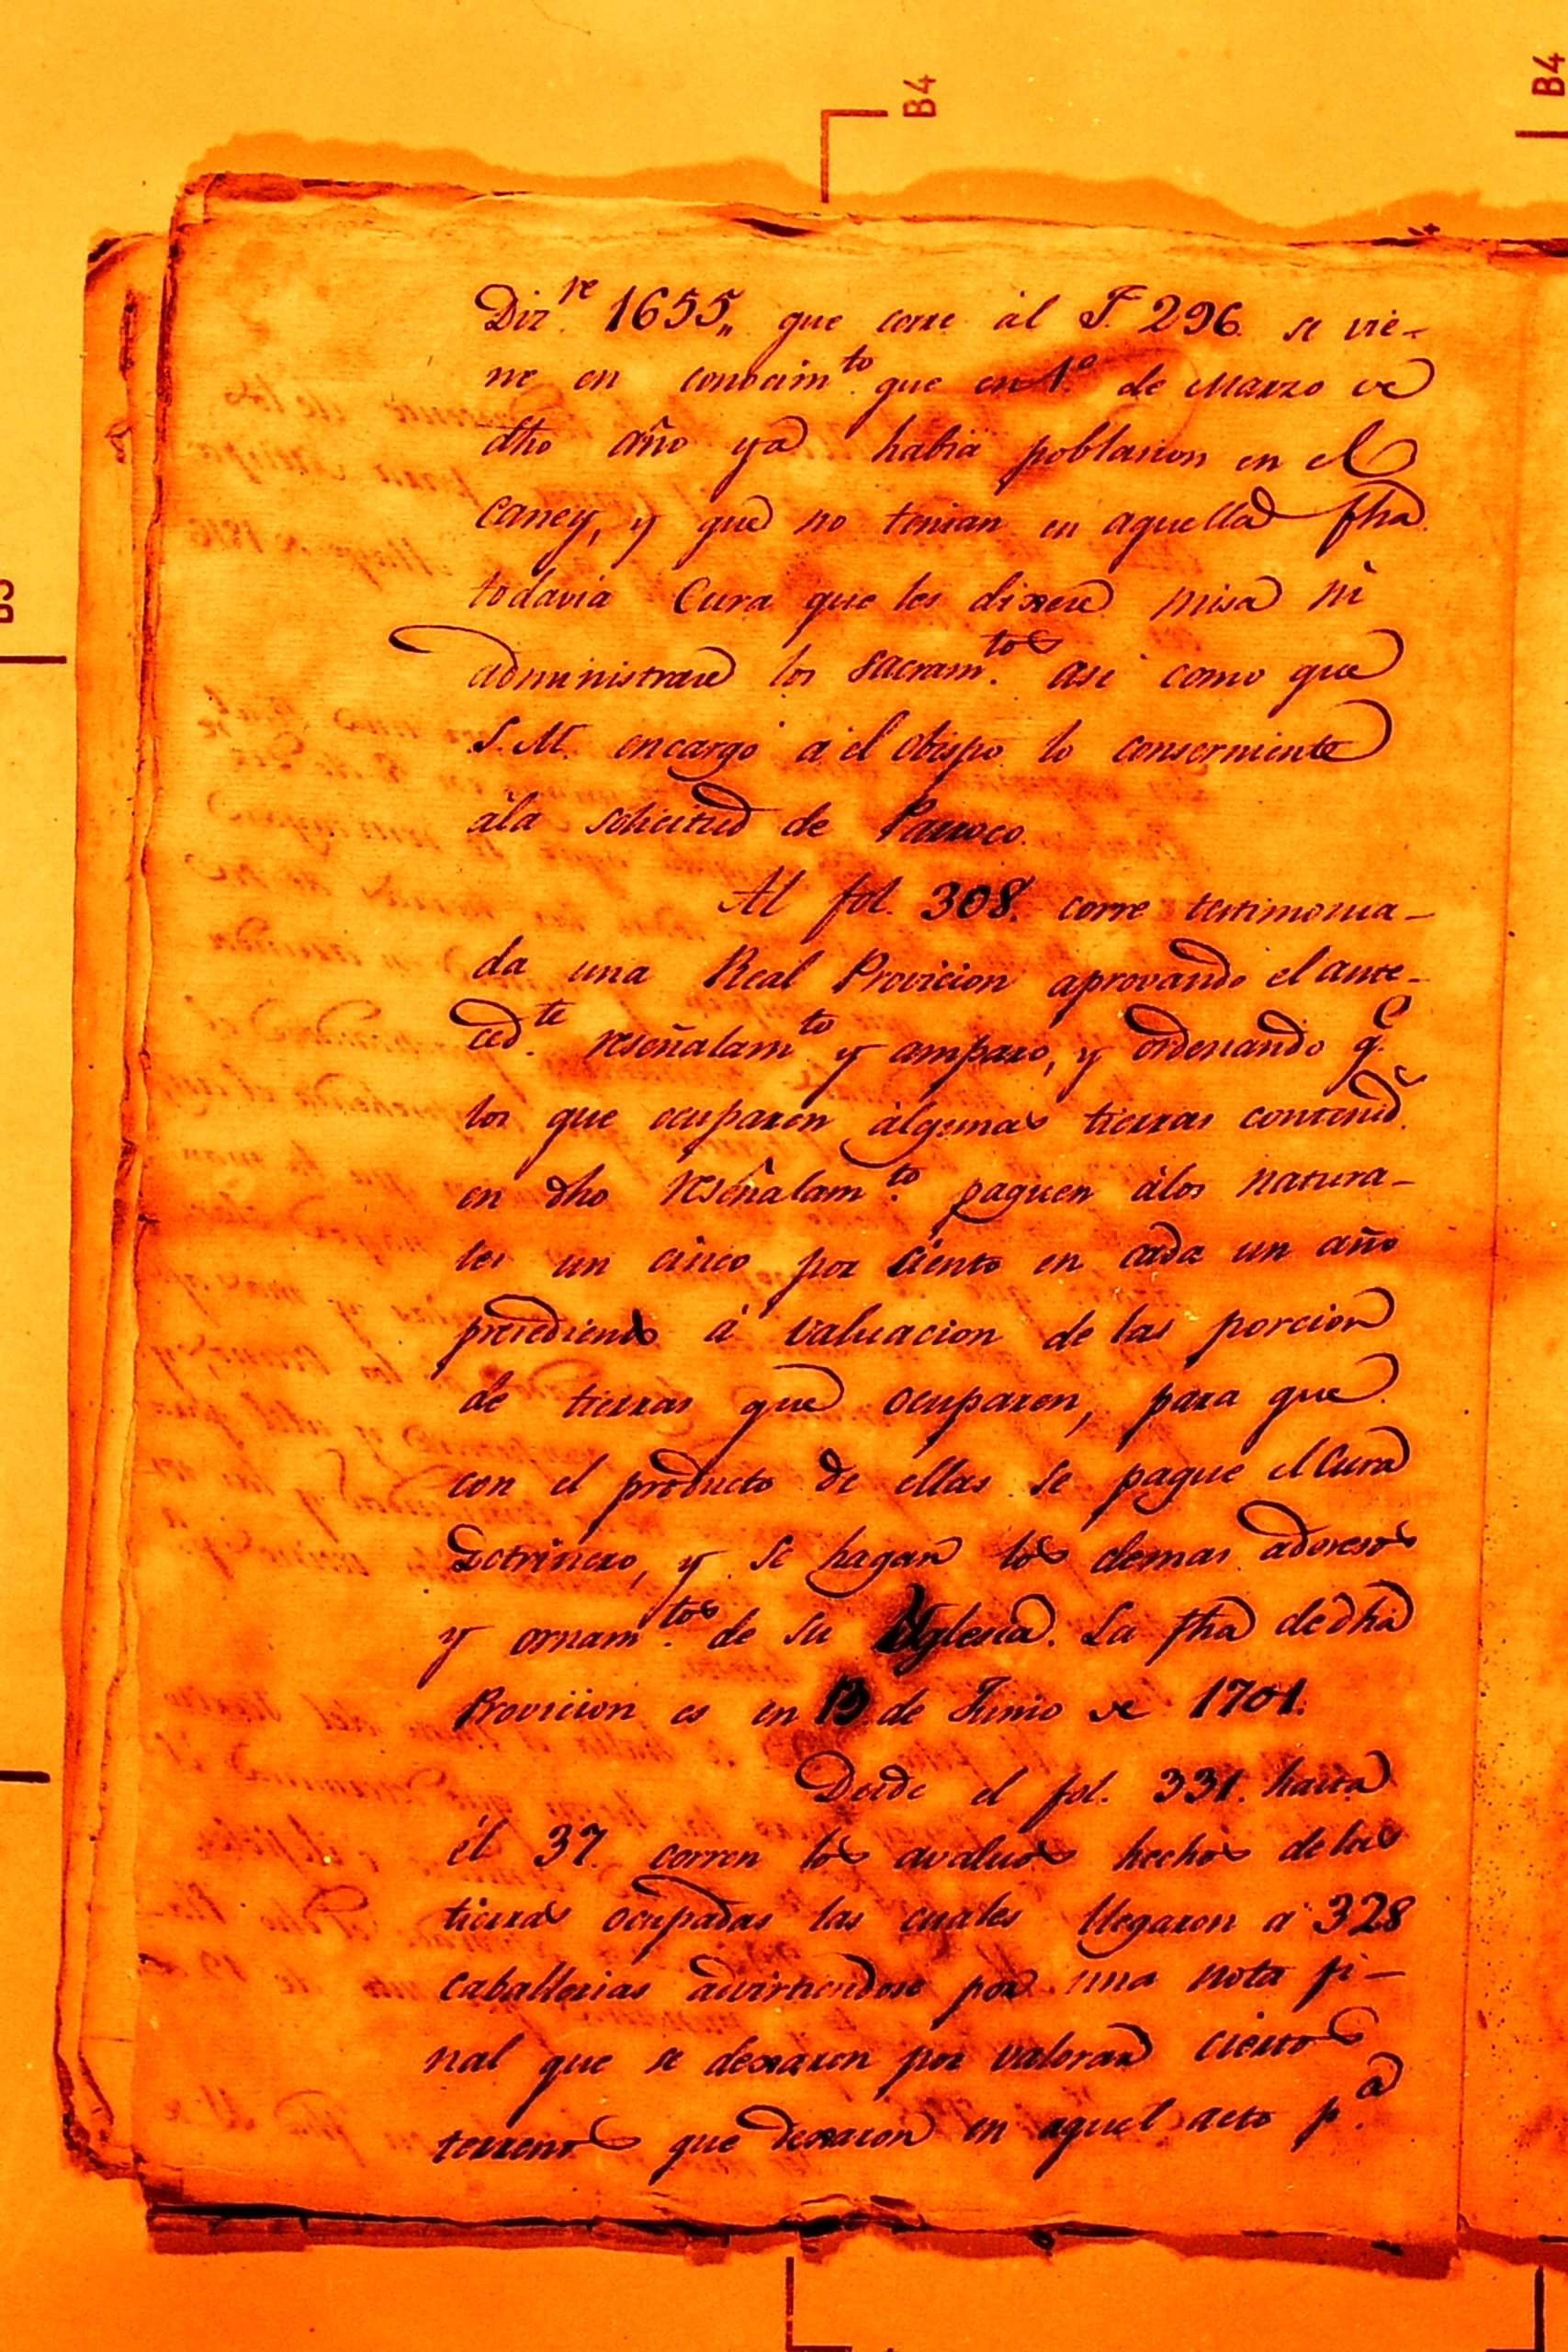 B4
B4
Diz.re 1655,, que corre al F. 296. se vie-
ne en conocim.to que en 1.o de Marzo de
dho año ya habia poblasion en el
caney, y que no tenian en aquella fha.
todavia Cura que les dixere misa ni
administrare los sacram.tos asi como que
S.M. encargó á el obispo lo conserniente
ála solicitud de Parroco.
Al fol. 308. corre testimonia-
da una Real Provicion aprovando el ante-
ced.te reseñalam.to y amparo, y ordenando q.e
los que ocuparen álgunas tierras contenid.s
en dho reseñalam.to paguen álos natura-
les un cinco por ciento en cada un año
precediendo á valuacion de las porcion
de tierras que ocuparen, para que
con el producto de ellas se pague el Cura
Doctrinero, y se hagan los demas aderesos
y ornam.tos de su Yglesia. La fha de dha
Provicion es en 13 de Junio de 1701.
Desde el fol. 331. hasta
él 37. corren los avaluos hechos de las
tierras ocupadas las cuales llegaron a 328
caballerias advirtiendose por una nota fi-
nal que se dexaron por valorar ciertos
terrenos que dexaron en aquel acto p.a